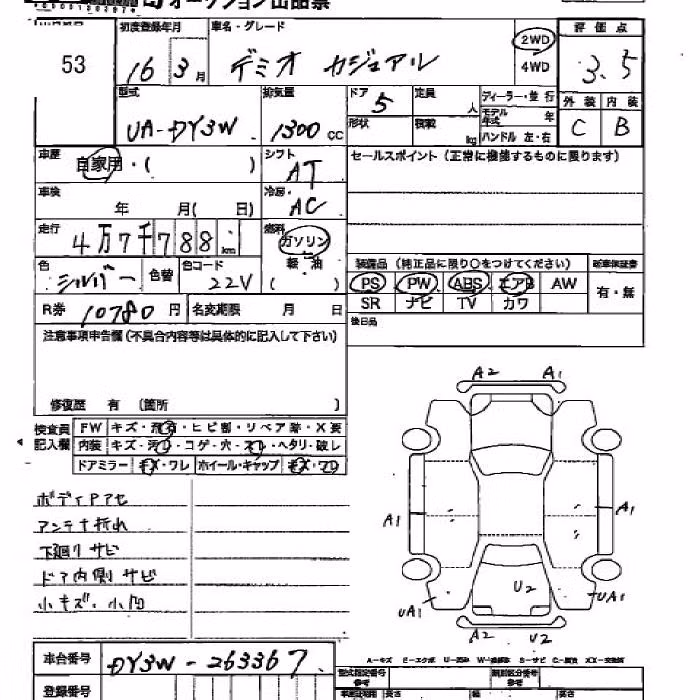 オークション出品票
53
初度登録年月
車名・グレード
16 3月
デミオ カジュアル
2WD
4WD
評価点
3.5
外装 内装
C B
型式
UA-DY3W
排気量
1300 cc
ドア
5
定員
人
形状
積載
kg
ディーラー・並行
モデル年式 年
ハンドル 左・右
車歴
自家用・( )
シフト
AT
セールスポイント(正常に機能するものに限ります)
車検
年 月( 日)
冷房
AC
走行
4万7千788 km
燃料
ガソリン
軽油
( )
色
シルバー
色替
色コード
22V
装備品(純正品に限り○をつけてください)
新車保証書
PS PW ABS エアB AW
SR ナビ TV カワ
有・無
R券 10780円
名変期限 月 日
後日品
注意事項申告欄(不具合内容等は具体的に記入して下さい)
修復歴 有 〔箇所 〕
検査員記入欄
FW キズ・飛石・ヒビ割・リペア跡・X要
内装 キズ・汚れ・コゲ・穴・スレ・ヘタリ・破レ
ドアミラー キズ・ワレ ホイール・キャップ キズ・ワレ
ボディアセ
アンテナ折れ
下廻りサビ
ドア内側サビ
小キズ・小凹
A2 A1
A1 A1
U2
UA1 UA1
A2 U2
車台番号 DY3W-263367
A-キズ E-エクボ U-凹み W-補修跡 S-サビ C-腐食 XX-交換済
型式指定番号
類別区分番号
登録番号
長さ 幅 高さ